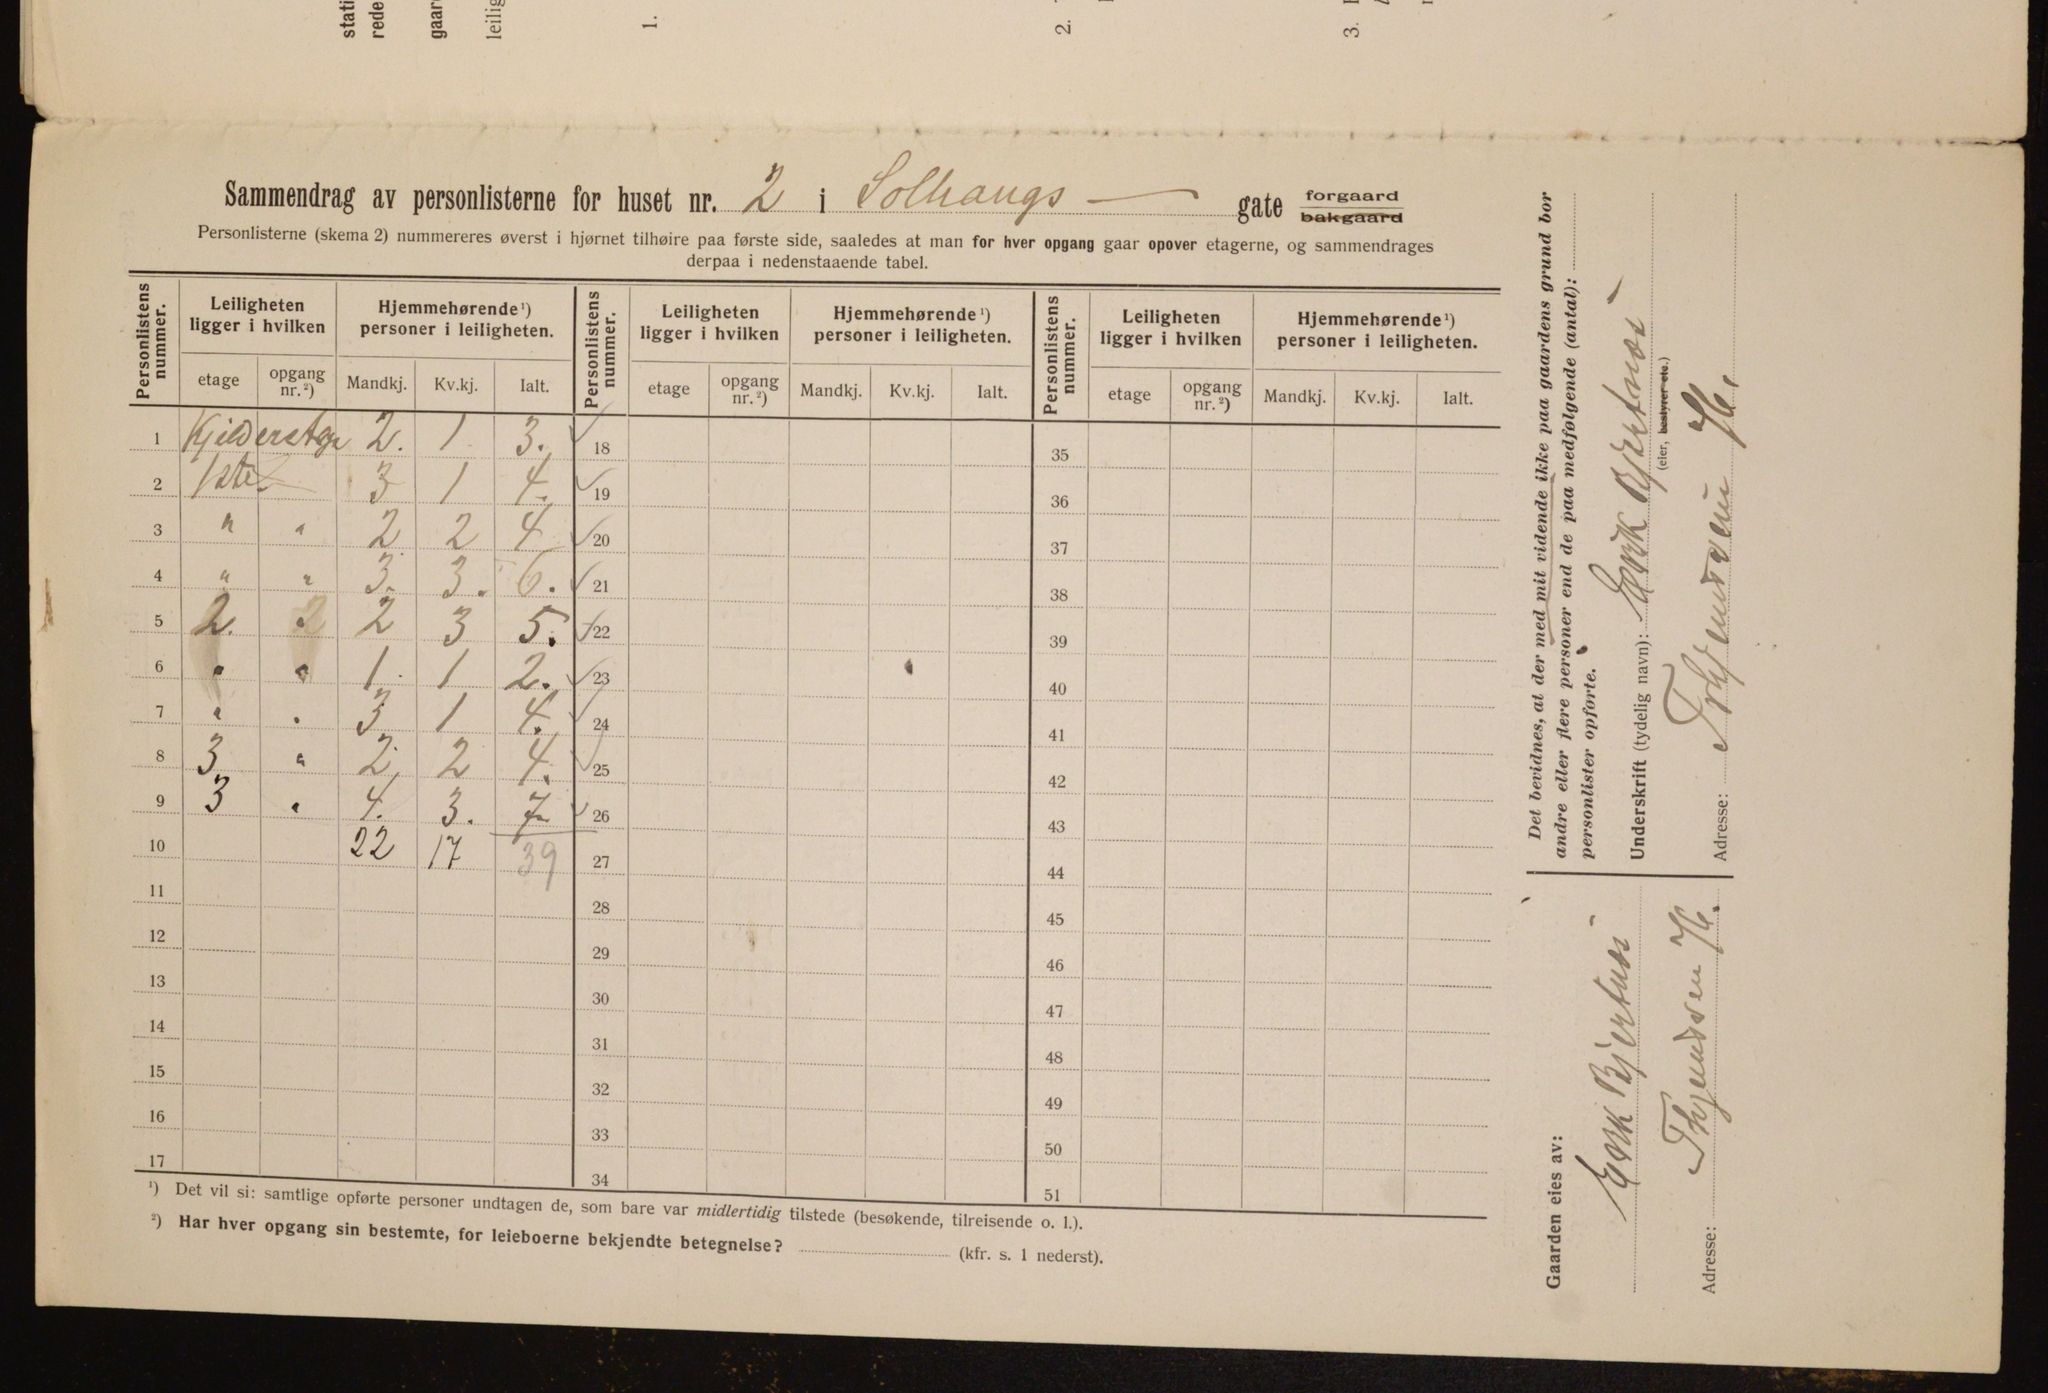 stati
rede
gaar
leilig
1.
2.
3.
Sammendrag av personlisterne for huset nr. 2 i Solhaugs — gate forgaard bakgaard
Personlisterne (skema 2) nummereres øverst i hjørnet tilhøire paa første side, saaledes at man for hver opgang gaar opover etagerne, og sammendrages
derpaa i nedenstaaende tabel.
Personlistens nummer. Leiligheten ligger i hvilken Hjemmehørende¹) personer i leiligheten. Personlistens nummer. Leiligheten ligger i hvilken Hjemmehørende¹) personer i leiligheten. Personlistens nummer. Leiligheten ligger i hvilken Hjemmehørende¹) personer i leiligheten.
etage opgang nr.²) Mandkj. Kv.kj. Ialt. etage opgang nr.²) Mandkj. Kv.kj. Ialt. etage opgang nr.²) Mandkj. Kv.kj. Ialt.
1 Kjelderetage 2. 1 3. 18 35
2 1ste 3 1 4. 19 36
3 " " 2 2 4 20 37
4 " " 3. 3. 6. 21 38
5 2. 2 2 3 5. 22 39
6 " " 1. 1 2. 23 40
7 " " 3 1 4. 24 41
8 3 " 2. 2 4. 25 42
9 3 " 4. 3. 7 26 43
10 22 17 39 27 44
11 28 45
12 29 46
13 30 47
14 31 48
15 32 49
16 33 50
17 34 51
¹) Det vil si: samtlige opførte personer undtagen de, som bare var midlertidig tilstede (besøkende, tilreisende o. l.).
²) Har hver opgang sin bestemte, for leieboerne bekjendte betegnelse? (kfr. s. 1 nederst).
Det bevidnes, at der med mit vidende ikke paa gaardens grund bor
andre eller flere personer end de paa medfølgende (antal):
personlister opførte.
Underskrift (tydelig navn): Erik Bjertnæs
(eier, bestyrer etc.)
Adresse:
Gaarden eies av:
Erik Bjertnæs
Adresse: